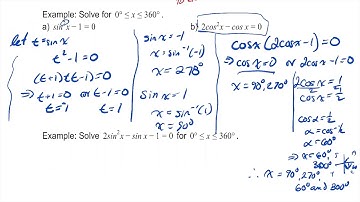 Example: Solve for 0° ≤ x ≤ 360°.
a) sin²x − 1 = 0
let t = sin x
t² − 1 = 0
(t+1)(t−1) = 0
⇒ t+1 = 0 or t−1 = 0
t = −1 t = 1
sin x = −1
x = sin⁻¹(−1)
x = 270°
sin x = 1
x = sin⁻¹(1)
x = 90°
b) 2cos²x − cos x = 0
cos x (2cos x − 1) = 0
⇒ cos x = 0 or 2cos x − 1 = 0
x = 90°, 270°
2cos x = 1
cos x = 1/2
cos α = 1/2
α = cos⁻¹ ½
α = 60°
⇒ x = 60°,
300°
∴ x = 90°, 270°
60° and 300°
Example: Solve 2sin²x − sin x − 1 = 0 for 0° ≤ x ≤ 360°.